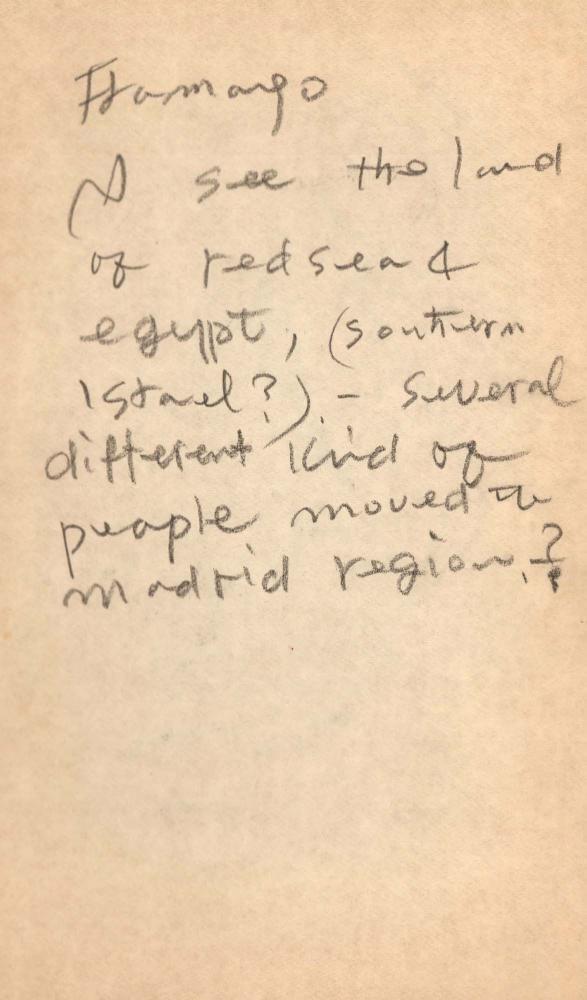 Flamango
I see the land
of red sea &
egyppt, (southern
Istael?) - several
different kind of
people moved to
madrid region.?